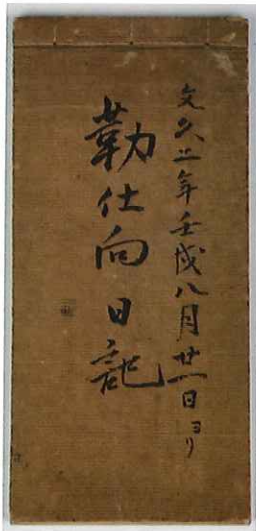 文久二年壬戌八月廿一日ヨリ
勤仕向日記